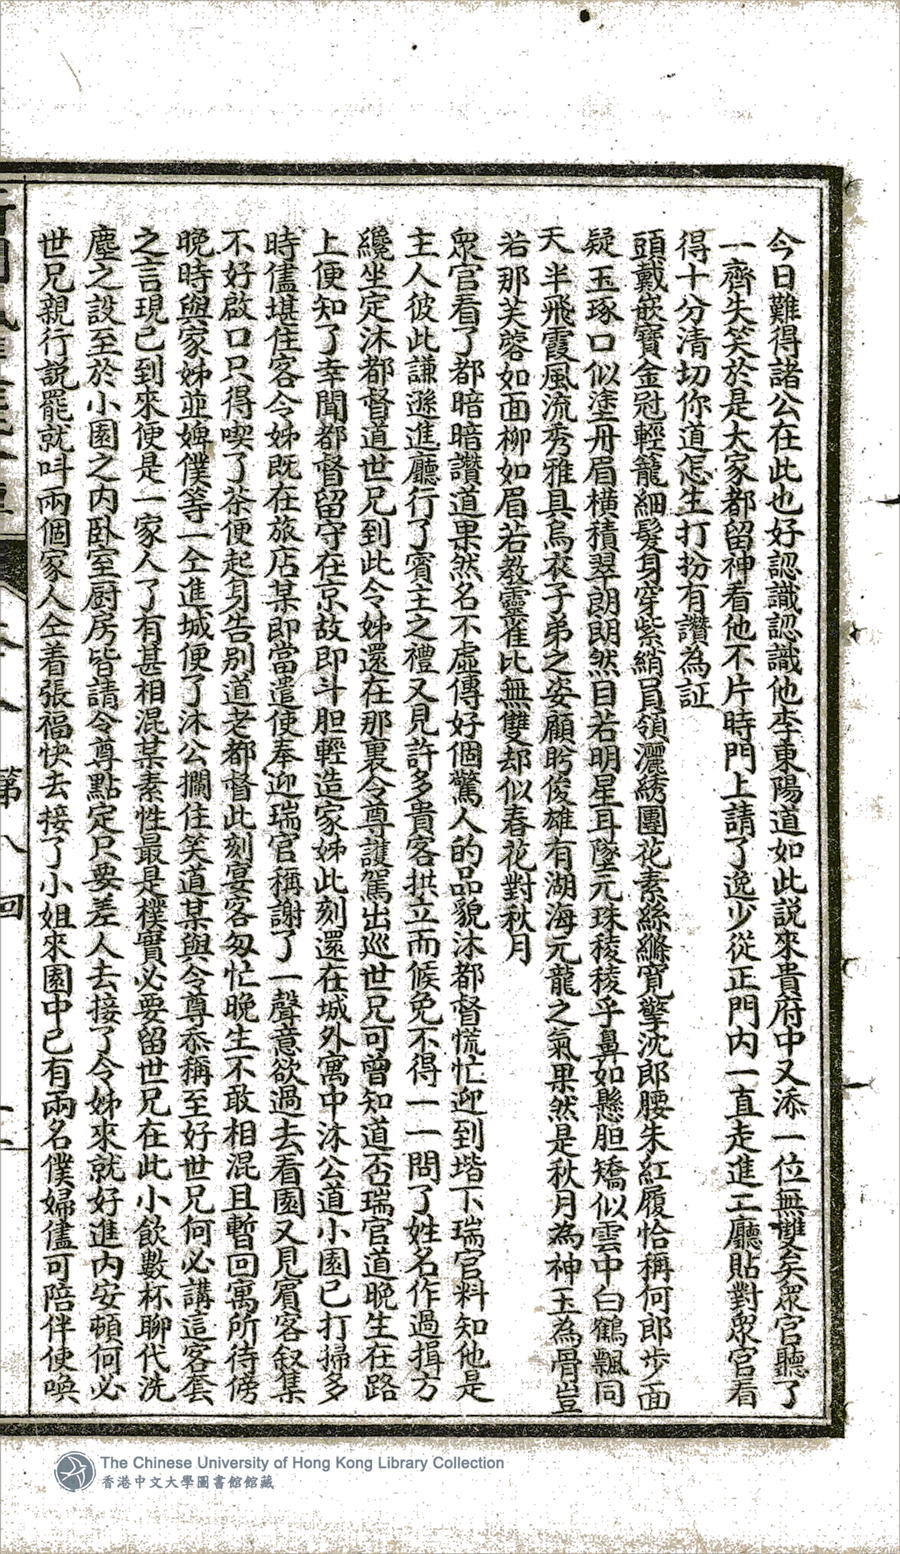 今日難得諸公在此也好認識認識他李東陽道如此説來貴府中又添一位無雙矣眾官聽了
一齊失笑於是大家都留神看他不片時門上請了逸少從正門内一直走進工廳貼對眾官看
得十分清切你道怎生打扮有讚為証
頭戴嵌寶金冠輕籠細髮身穿紫綃員領灑綉團花素絲縧寬擎沈郎腰朱紅履恰稱何郎步面
疑玉琢口似塗丹眉橫積翠朗朗然目若明星耳墜元珠稜稜乎鼻如懸胆矯似雲中白鶴飄同
天半飛霞風流秀雅具烏衣子弟之姿顧盻俊雄有湖海元龍之氣果然是秋月為神玉為骨豈
若那芙蓉如面柳如眉若教靈雀比無雙却似春花對秋月
眾官看了都暗暗讚道果然名不虛傳好個驚人的品貌沐都督慌忙迎到堦下瑞官料知他是
主人彼此謙遜進廳行了賓主之禮又見許多貴客拱立而候免不得一一問了姓名作過揖方
纔坐定沐都督道世兄到此令姊還在那裏令尊護駕出巡世兄可曾知道否瑞官道晚生在路
上便知了幸聞都督留守在京故即斗胆輕造家姊此刻還在城外寓中沐公道小園已打掃多
時儘堪住客令姊既在旅店某即當遣使奉迎瑞官稱謝了一聲意欲過去看園又見賓客叙集
不好啟口只得喫了茶便起身告别道老都督此刻宴客匆忙晚生不敢相混且暫回寓所待傍
晚時與家姊並婢僕等一仝進城便了沐公攔住笑道某與令尊忝稱至好世兄何必講這客套
之言現已到來便是一家人了有甚相混某素性最是樸實必要留世兄在此小飲數杯聊代洗
塵之設至於小園之内卧室厨房皆請令尊點定只要差人去接了令姊來就好進内安頓何必
世兄親行説罷就呌兩個家人仝着張福快去接了小姐來園中已有兩名僕婦儘可陪伴使喚
第八回
The Chinese University of Hong Kong Library Collection
香港中文大學圖書館館藏